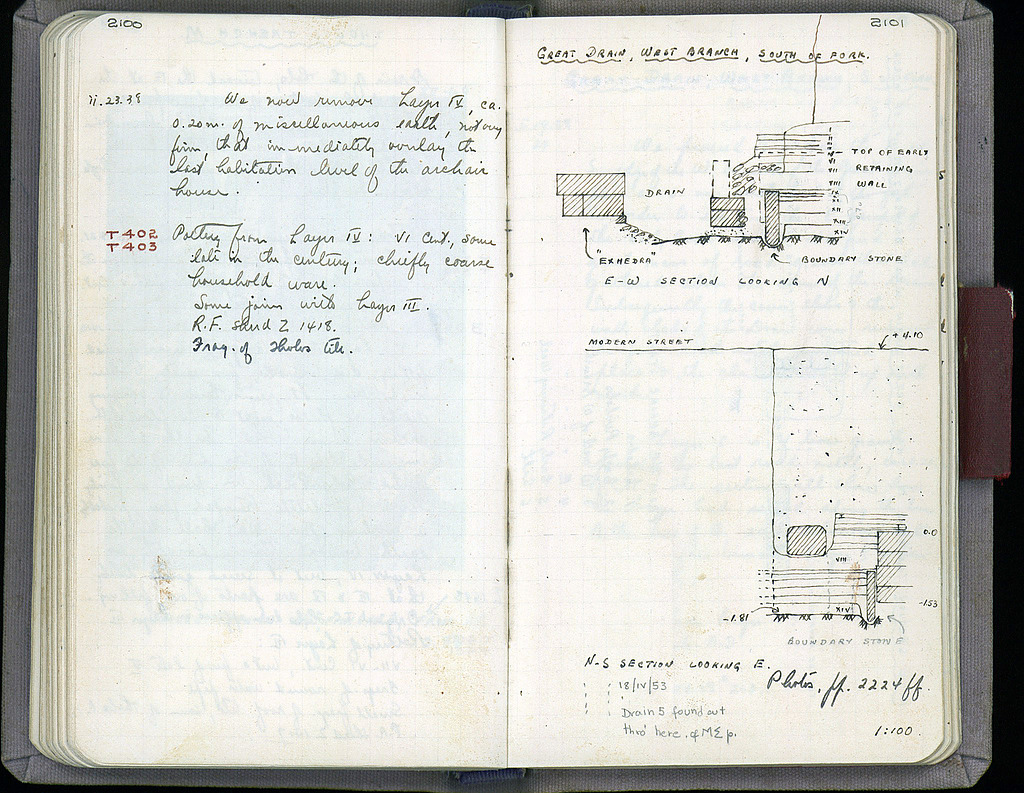 2100
VI.23.38 We now remove Layer IV, ca.
0.20 m. of miscellaneous earth, not very
firm, that immediately overlay the
last habitation level of the archaic
house.
T402
T403
Pottery from Layer IV: VI cent., some
late in the century; chiefly coarse
household ware.
Some joins with Layer III.
R.F. sherd Z 1418.
Frag. of Tholos tile.
2101
GREAT DRAIN, WEST BRANCH, SOUTH OF FORK.
TOP OF EARLY
RETAINING
WALL
DRAIN
VI
VII
VIII
IX
XI
XII
XIII
XIV
0.70
BOUNDARY STONE
"EXHEDRA"
E-W SECTION LOOKING N
MODERN STREET
+4.10
I
0.0
VIII
-1.53
XIV
-1.81
BOUNDARY STONE
N-S SECTION LOOKING E.
Photos, pp. 2224 ff.
" " 18/IV/53
Drain 5 found out
thro' here. cf M Σ p.
1:100.